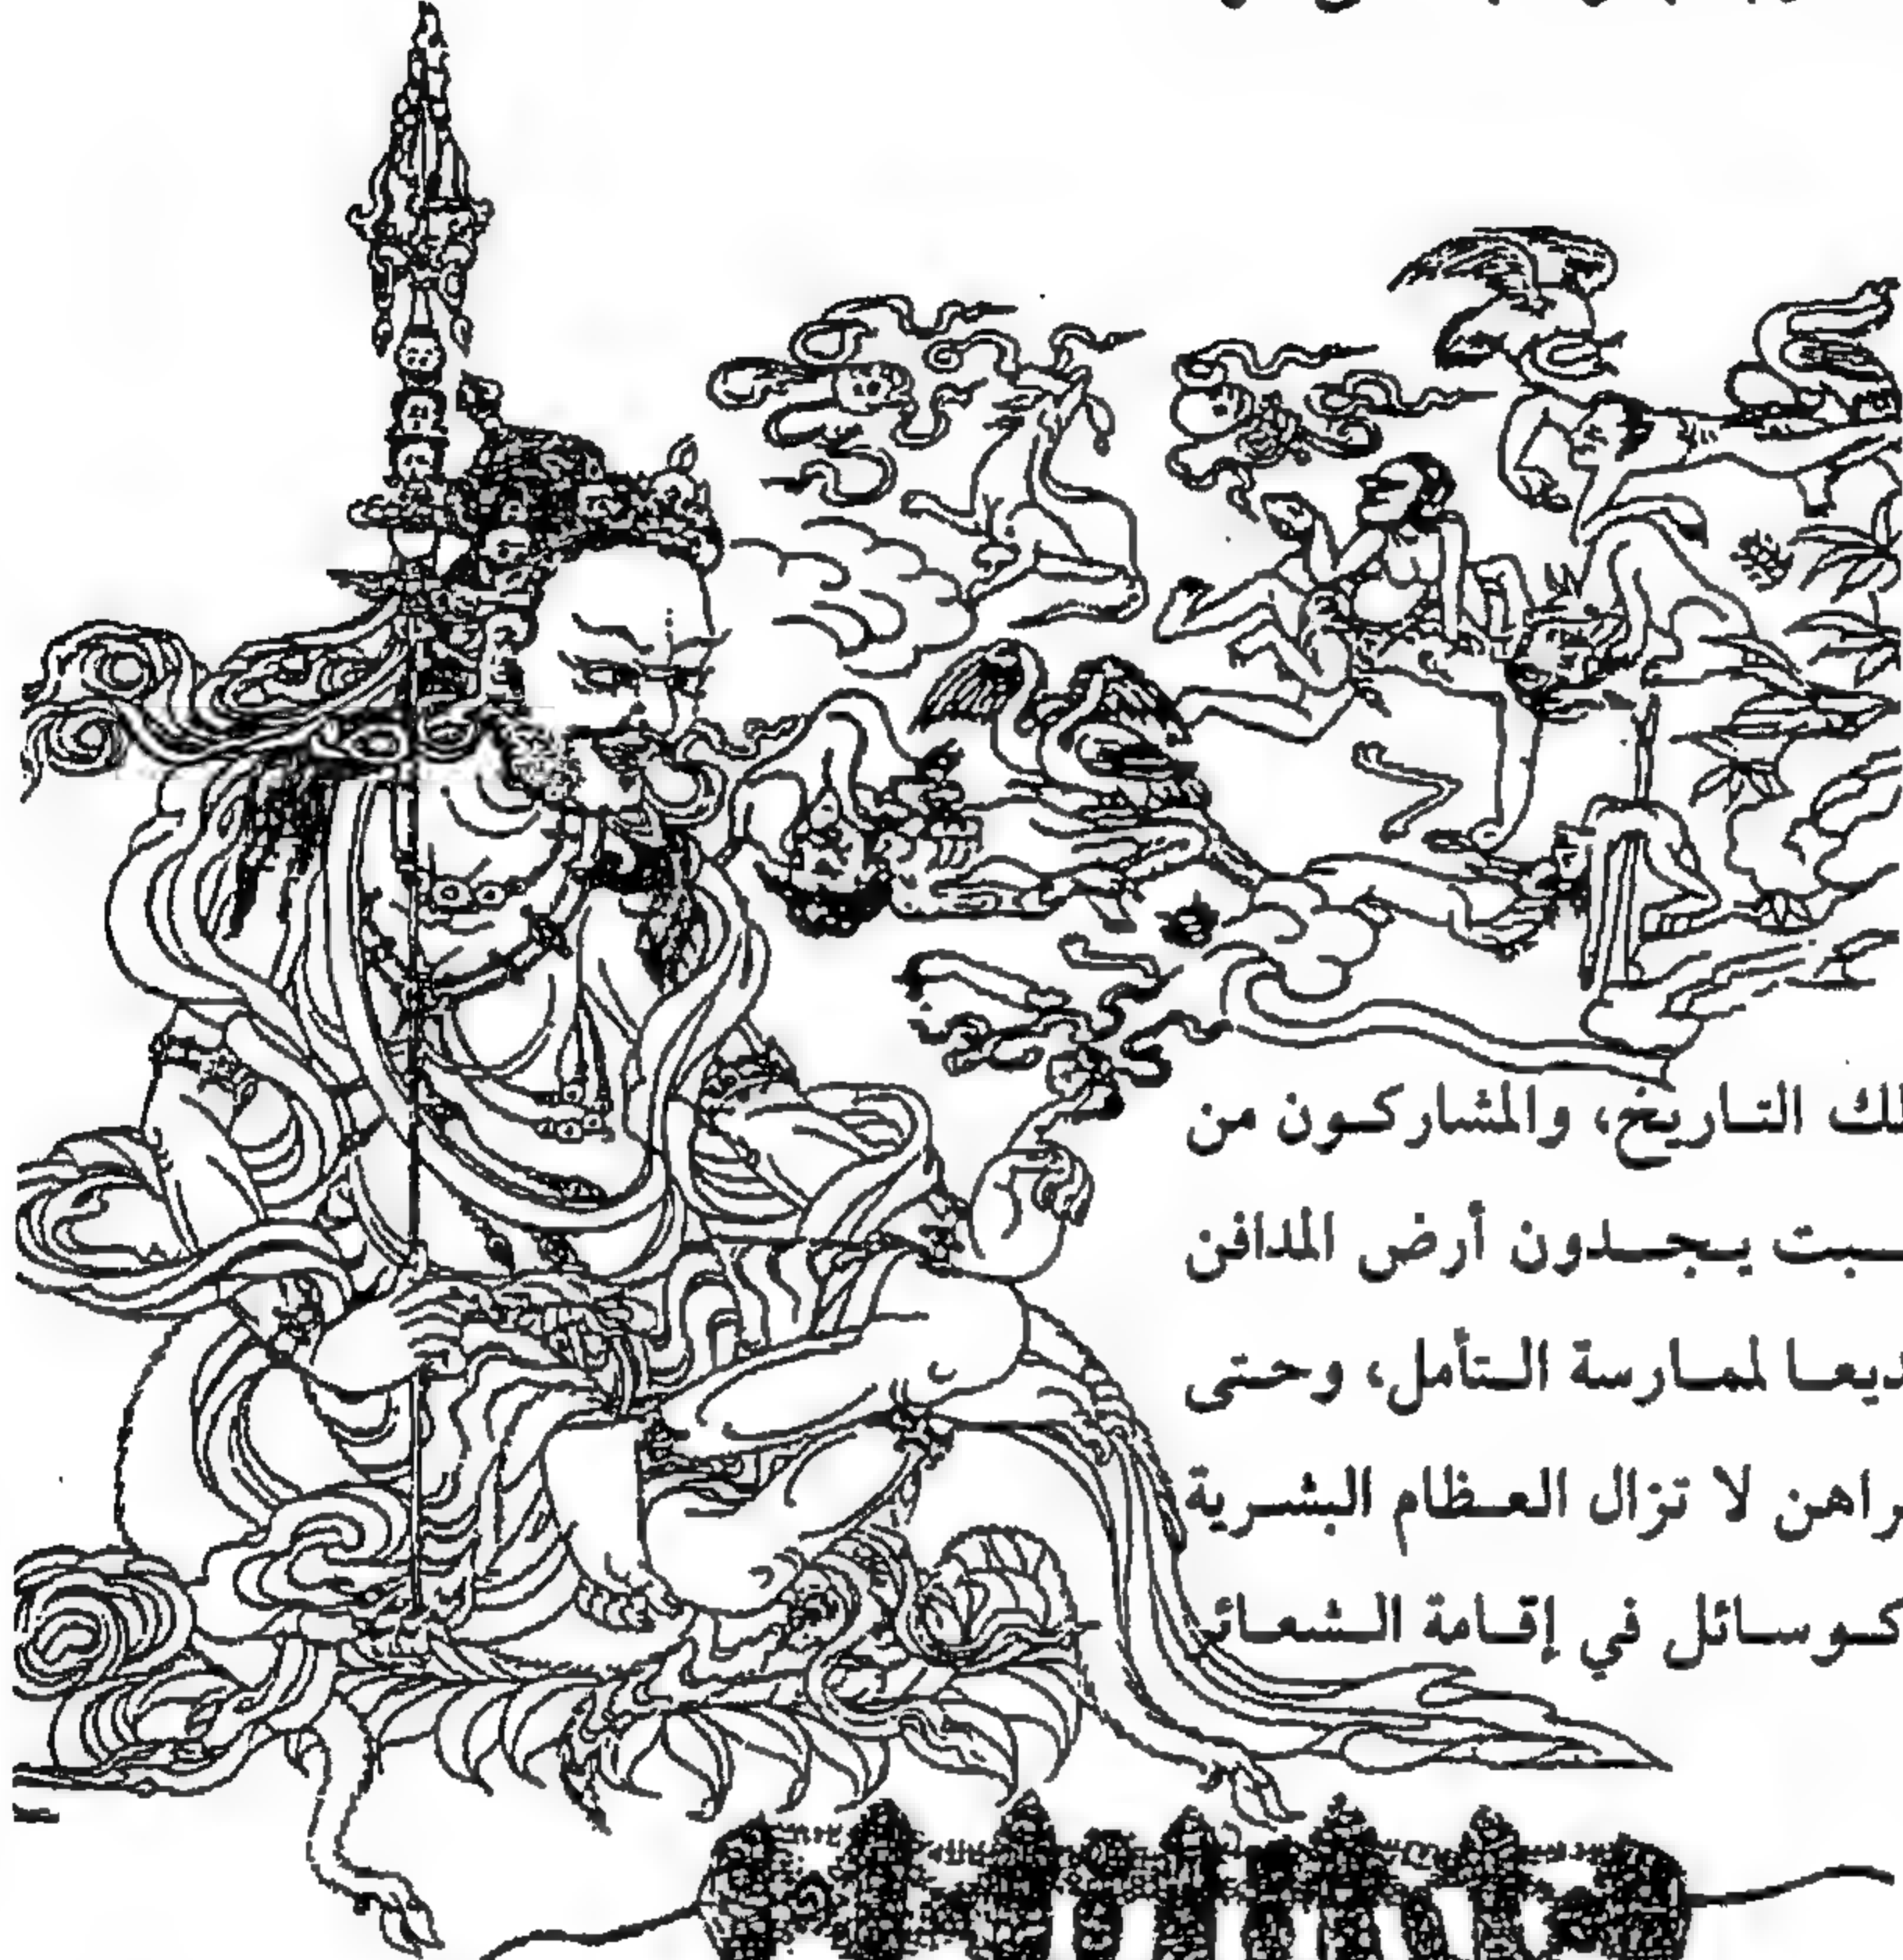 التاريخ، والمشاركون من
يجدون أرض المدافن
لممارسة التأمل، وحتى
لا تزال العظام البشرية
كوسائل في إقامة الشعائر